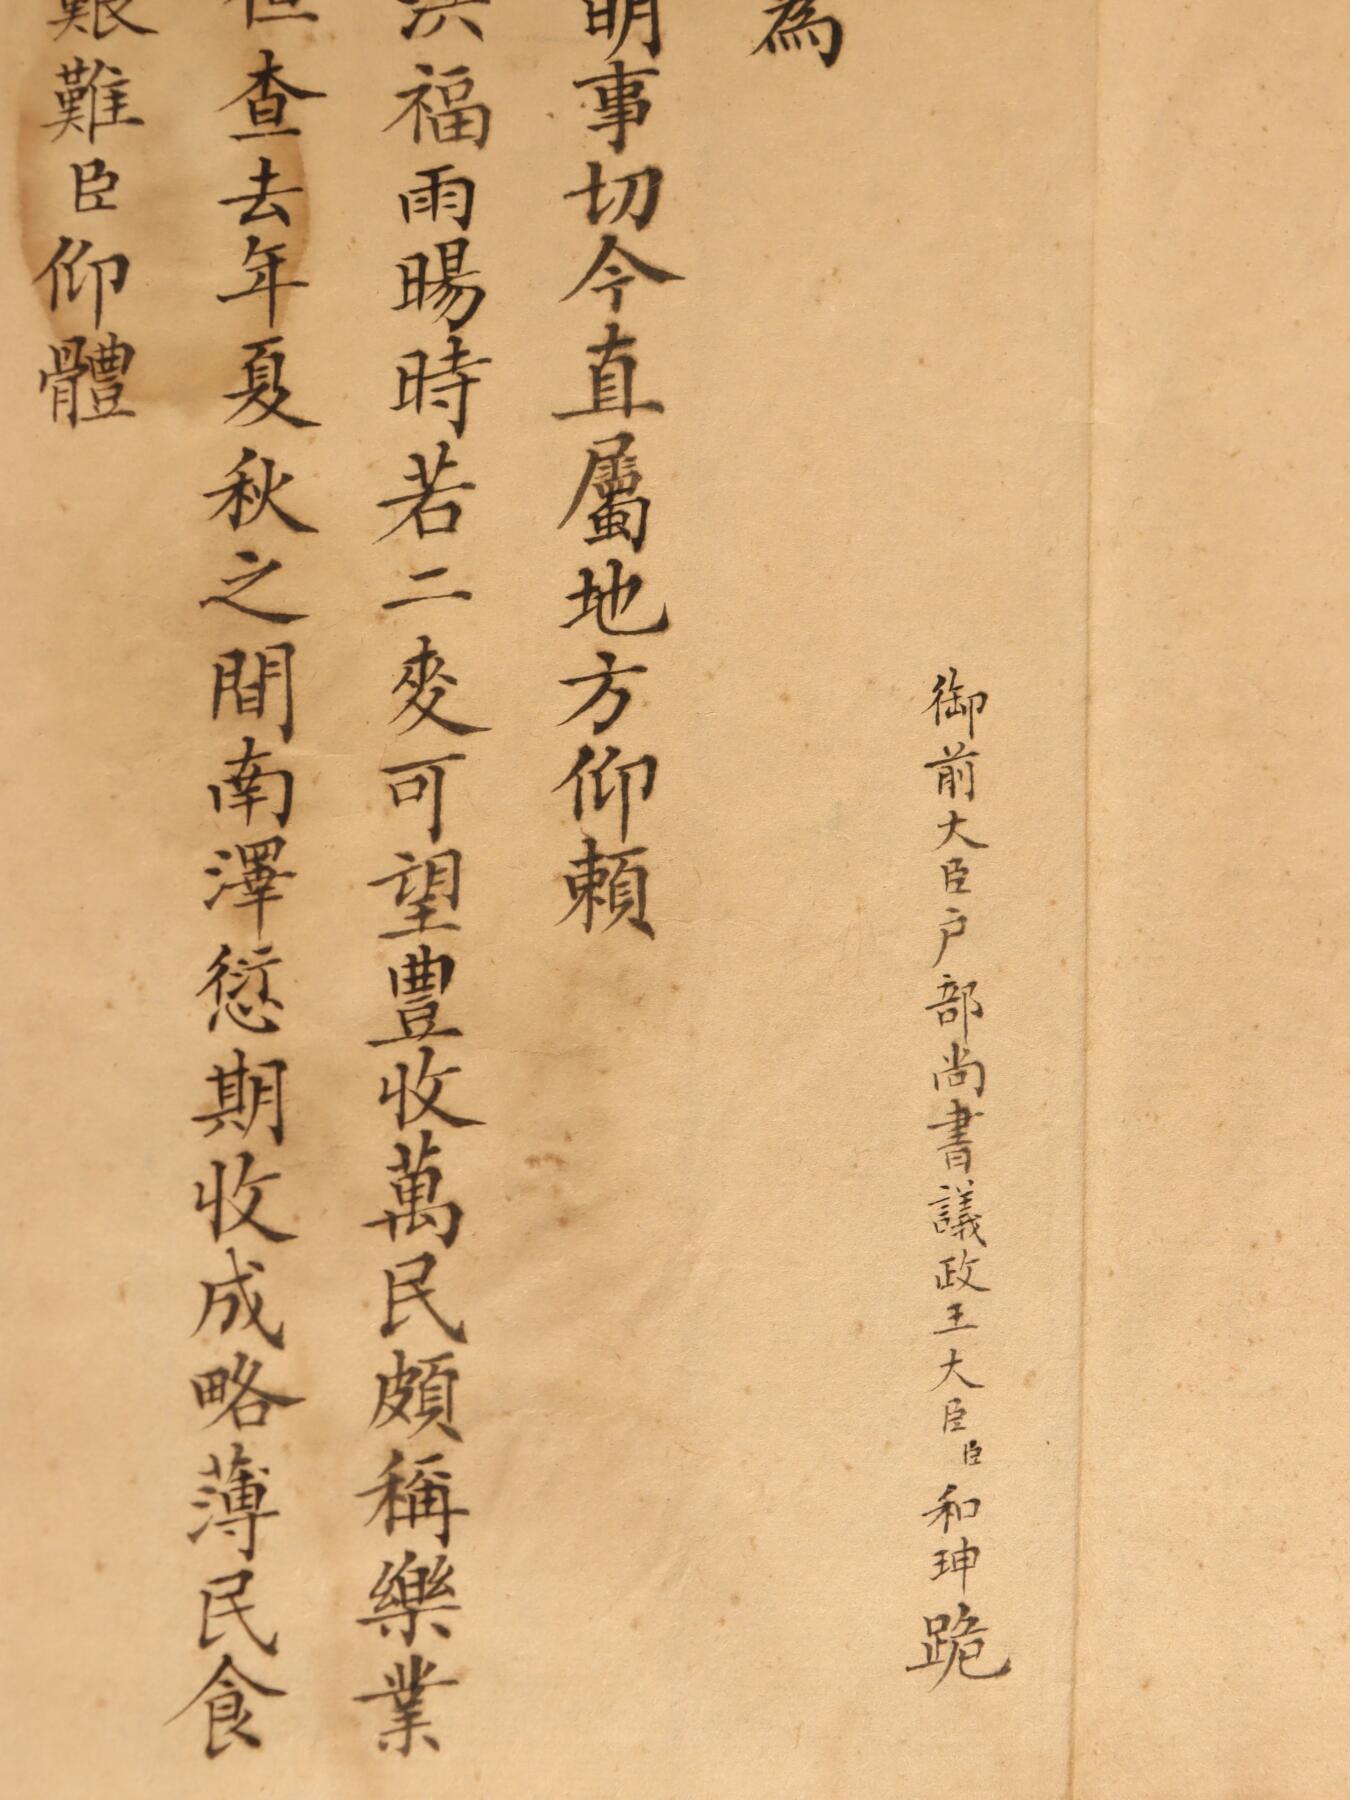 御前大臣户部尚書議政王大臣臣和珅跪
為
明事切今直屬地方仰賴
洪福雨暘時若二麥可望豐收萬民頗稱樂業
但查去年夏秋之間南澤愆期收成略薄民食
艱難臣仰體